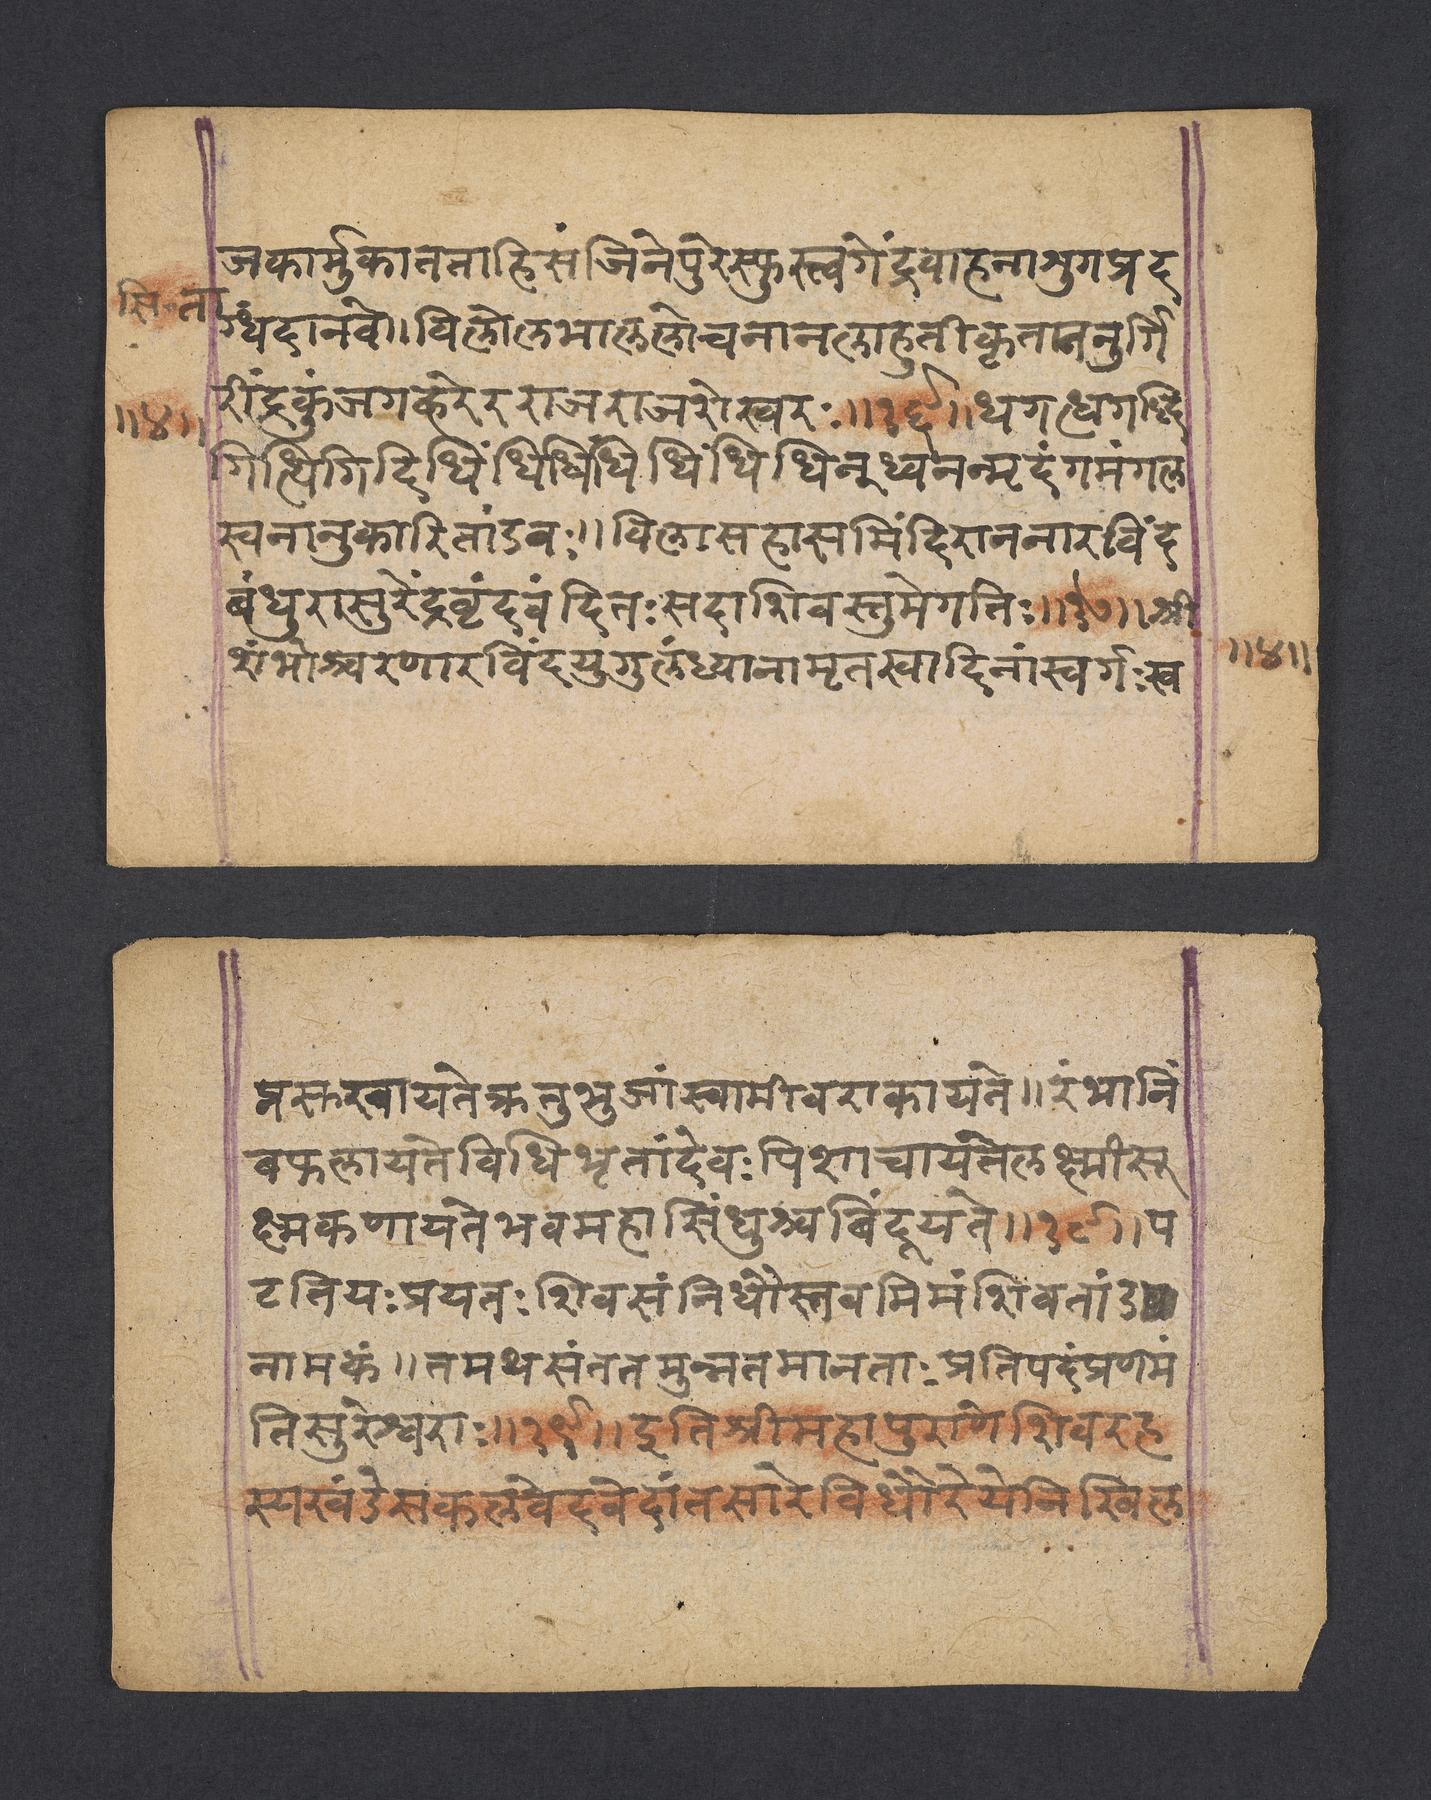 जकार्मुकाननाहिसंजिनेपुरेस्फुरत्त्वगेंद्रवाहनाशुगप्रद
सि॰ता
ग्धदानवे॥विलोलभाललोचनानलाहुतीकृताननुर्गि
रींद्रकुंजगव्हरेरराजराजशेस्वरः॥१६॥धगत्धगद्धि
॥४॥
गित्धिगिदिधिंधिंधिंधिंधिंधिंधिनुध्वनन्मृदंगमंगल
स्वनानुकारितांडवः॥विलासहासमिंदिराननारविंद
बंधुरासुरेंद्रवृंदवंदितःसदाशिवस्तुमेगतिः॥१७॥श्री
शंभोश्चरणारविंदयुगुलंध्यानामृतस्वादिनांस्वर्गःस्व
॥४॥
प्नस्तरवायतेक्रतुभुजांस्वामीवराकायते॥रंभानिं
बफलायतेविधिभृतांदेवःपिशाचायतेलक्ष्मीसू
क्ष्मकणायतेभवमहासिंधुश्चबिंदूयते॥१८॥प
टतियःप्रयतःशिवसंनिधौस्तवमिमंशिवतांड
नामकं॥तमथसंततमुन्नतमानताःप्रतिपदंप्रणमं
तिसुरेश्वराः॥१९॥इतिश्रीमहापुराणेशिवरह
स्यखंडेसकलवेदवेदांतसारेविधौरेयेनिखिल